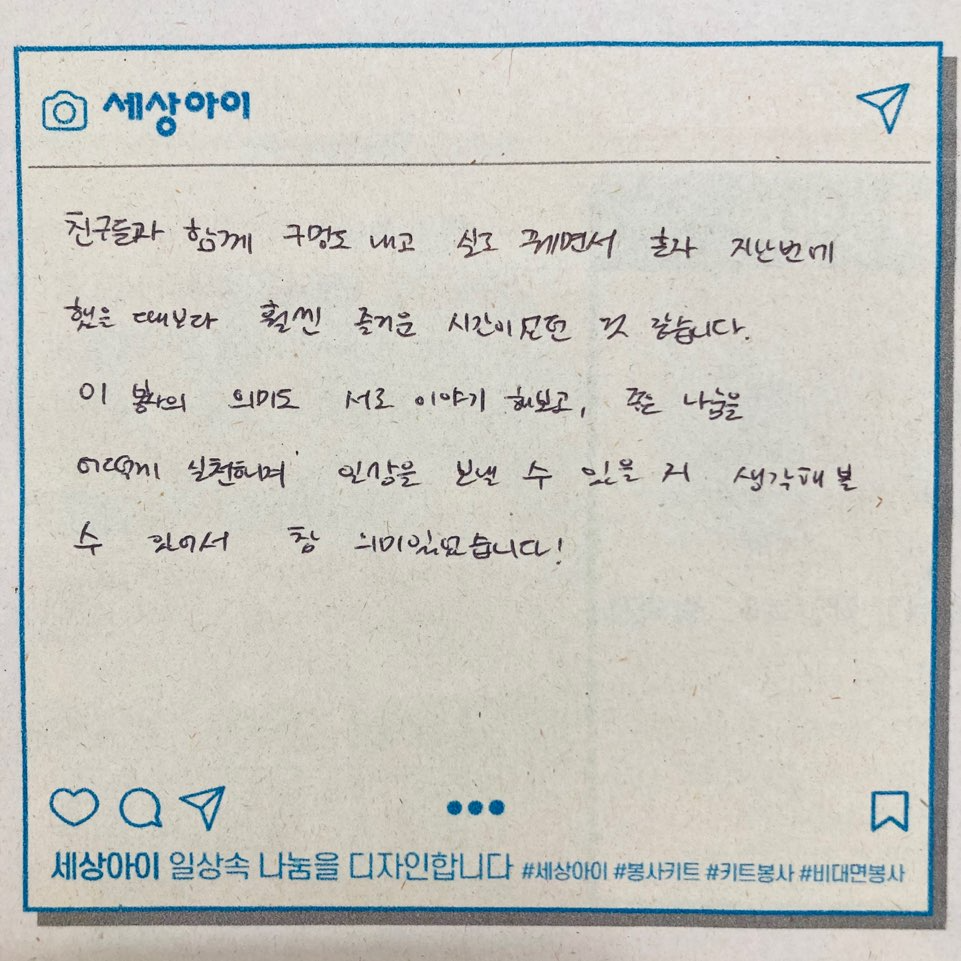 세상아이
친구들과 함께 구멍도 내고 실도 꿰면서 혼자 지난번에
했을 때보다 훨씬 즐거운 시간이었던 것 같습니다.
이 봉사의 의미도 서로 이야기 해보고, 좋은 나눔을
어떻게 실천하며 일상을 보낼 수 있을 지 생각해 볼
수 있어서 참 의미있었습니다!
세상아이 일상속 나눔을 디자인합니다 #세상아이 #봉사키트 #키트봉사 #비대면봉사